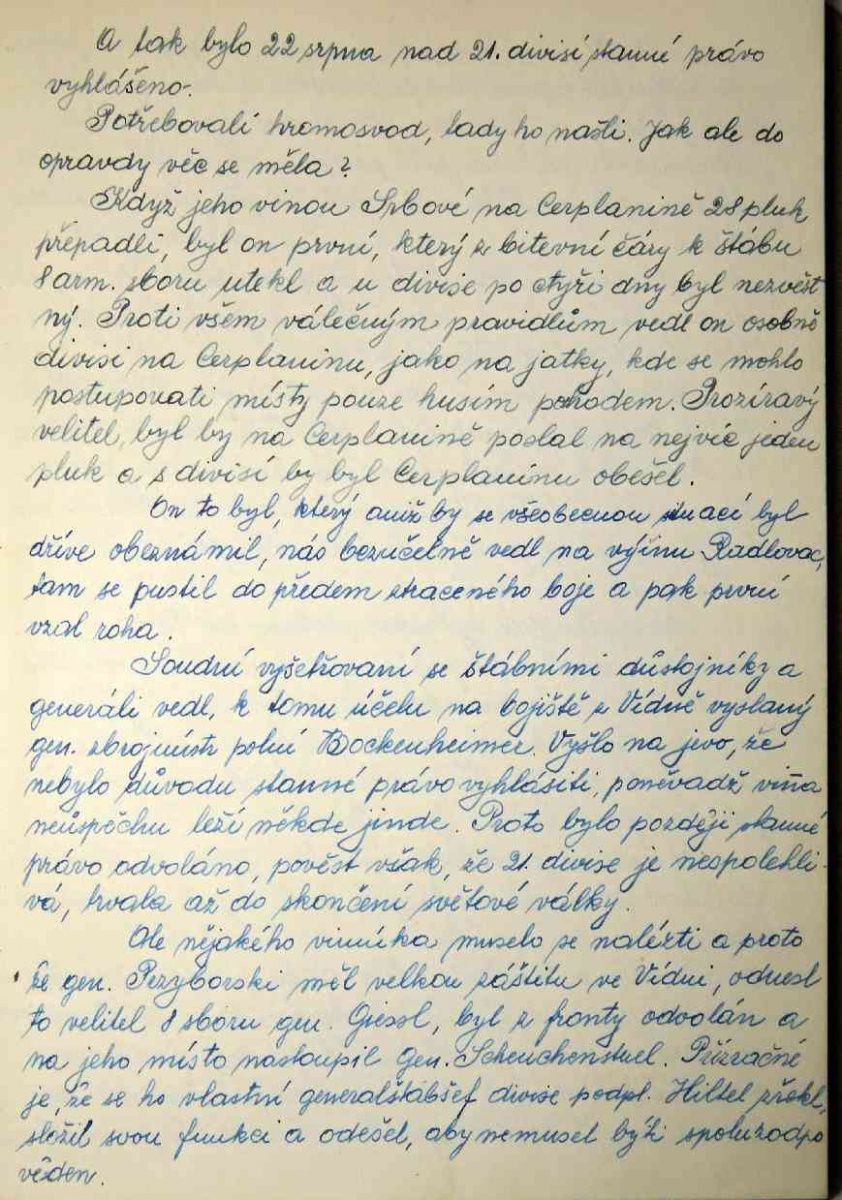 A tak bylo 22 srpna nad 21. divisí stanné právo
vyhlášeno.
Potřebovali hromosvod, tady ho našli. Jak ale do
opravdy věc se měla?
Když jeho vinou Srbové na Cerplanině 28 pluk
přepadli, byl on první, který z bitevní čáry k štábu
8 arm. sboru utekl a u divise po čtyři dny byl nezvěst
ný. Proti všem válečným pravidlům vedl on osobně
divisi na Cerplaninu, jako na jatky, kde se mohlo
postupovati místy pouze husím pohodem. Prozíravý
velitel, byl by na Cerplanině poslal na nejvíc jeden
pluk a s divisí by byl Cerplaninu obešel.
On to byl, který aniž by se všeobecnou situací byl
dříve obeznámil, nás bezúčelně vedl na výšinu Radlovac,
tam se pustil do předem ztraceného boje a pak první
vzal roha.
Soudní vyšetřovaní se štábními důstojníky a
generáli vedl, k tomu účelu na bojiště z Vídně vyslaný
gen. zbrojmistr polní Bockenheimer. Vyšlo na jevo, že
nebylo důvodu stanné právo vyhlásiti, poněvadž vina
neúspěchu leží někde jinde. Proto bylo později stanné
právo odvoláno, pověst však, že 21. divise je nespolehli-
vá, trvala až do skončení světové války.
Ale nějakého viníka muselo se nalézti a proto
že gen. Przyborski měl velkou záštitu ve Vídni, odnesl
to velitel 8 sboru gen. Giessl, byl z fronty odvolán a
na jeho místo nastoupil gen. Scheuchenstuel. Příznačné
je, že se ho vlastní generalštábšéf divise podpl. Hiltel zřekl,
složil svou funkci a odešel, aby nemusel býti spoluzodpo
věden.